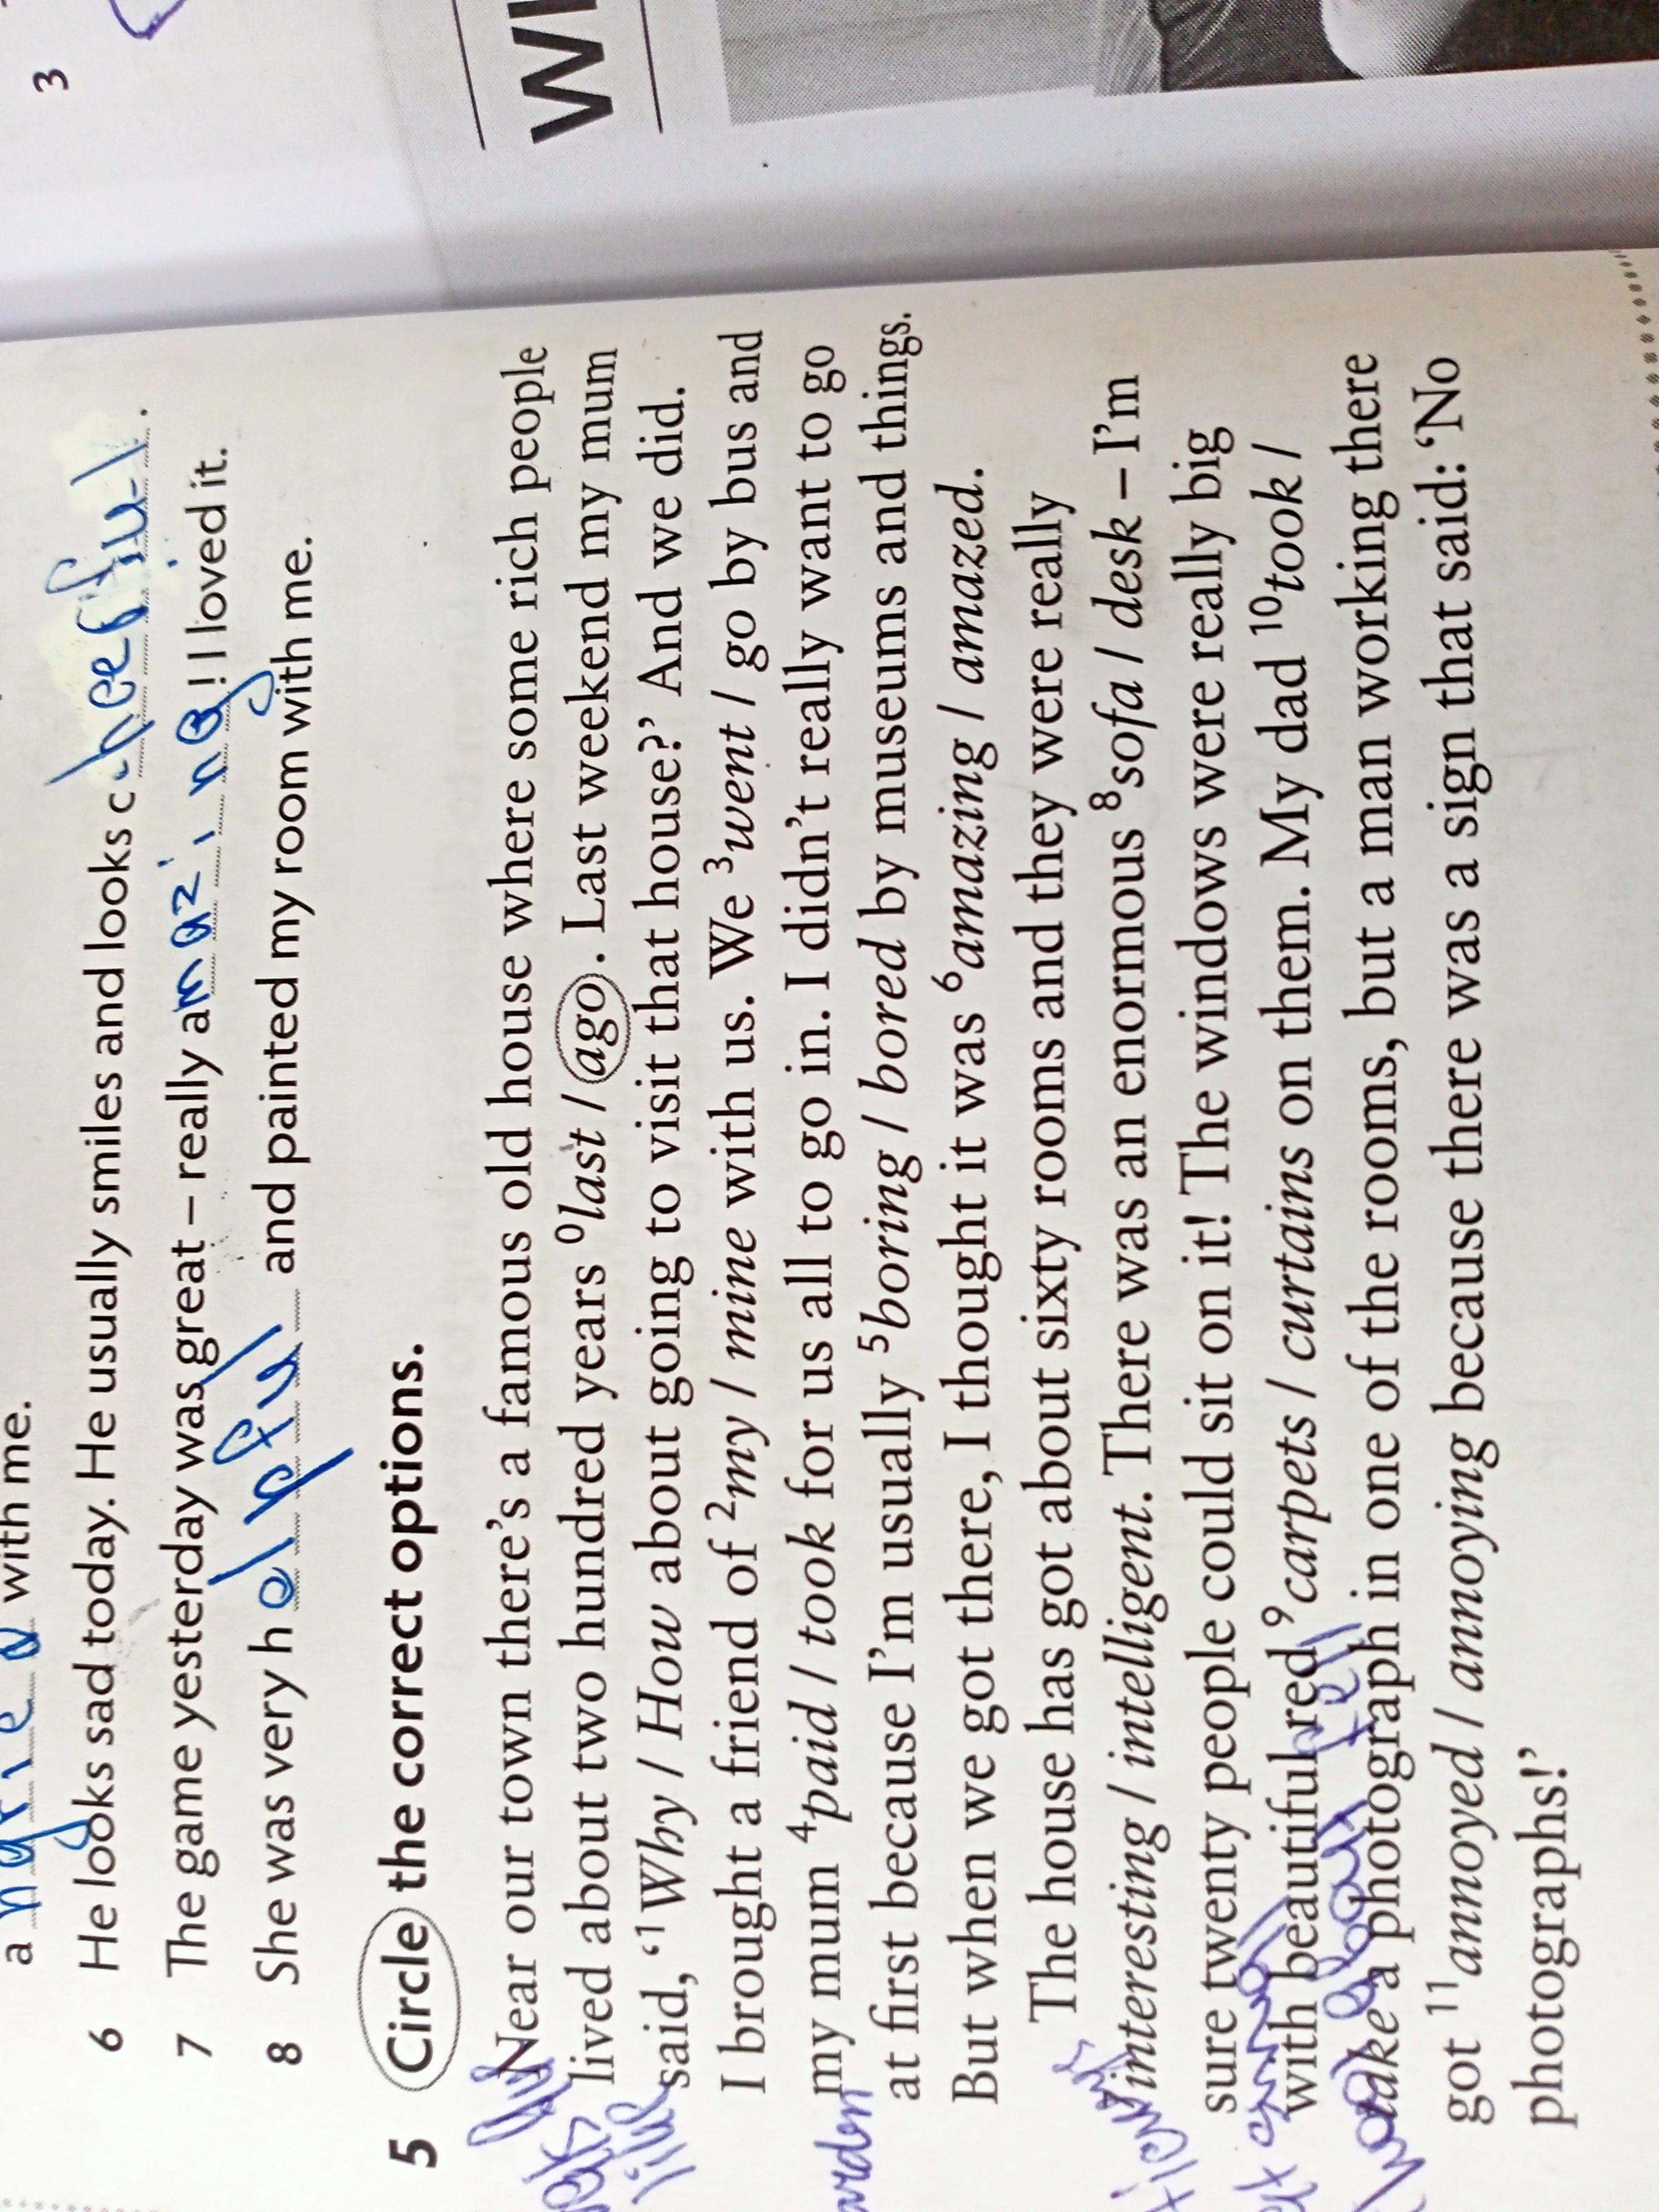 3
WI
a with me.
6 He looks sad today. He usually smiles and looks c heerful.
7 The game yesterday was great – really amazing! I loved it.
8 She was very helpful and painted my room with me.
5 Circle the correct options.
Near our town there's a famous old house where some rich people
lived about two hundred years ⁰last / ago. Last weekend my mum
said, '¹Why / How about going to visit that house?' And we did.
I brought a friend of ²my / mine with us. We ³went / go by bus and
my mum ⁴paid / took for us all to go in. I didn't really want to go
at first because I'm usually ⁵boring / bored by museums and things.
But when we got there, I thought it was ⁶amazing / amazed.
The house has got about sixty rooms and they were really
⁷interesting / intelligent. There was an enormous ⁸sofa / desk – I'm
sure twenty people could sit on it! The windows were really big
with beautiful red ⁹carpets / curtains on them. My dad ¹⁰took /
take a photograph in one of the rooms, but a man working there
got ¹¹annoyed / annoying because there was a sign that said: 'No
photographs!'